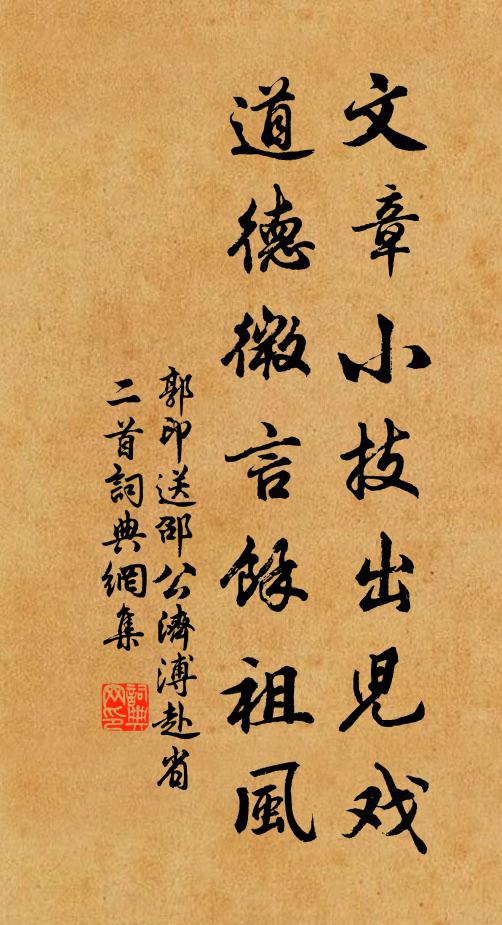 文章小技出児戏
道德微言餘祖風
郭印送邵公濟溥赴省
二首詞典網集
詞典
网印